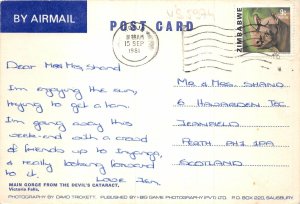 BY AIRMAIL
POST CARD
15 SEP
1981
ZIMBABWE
9c
Dear Mr & Mrs Shand
I'm enjoying the sun,
trying to get a tan.
I'm going away this
week-end with a crowd
of friends up to Inyanga,
& really looking forward
to it.
Love Jen.
MR & MRS. SHAND
6 HAWARDEN TCE.
JEANFIELD
PERTH PH1 1PA
SCOTLAND
MAIN GORGE FROM THE DEVIL'S CATARACT,
Victoria Falls.
PHOTOGRAPHY BY DAVID TROKETT. PUBLISHED BY BIG GAME PHOTOGRAPHY PVT) LTD. P.O. BOX 220, SALISBURY